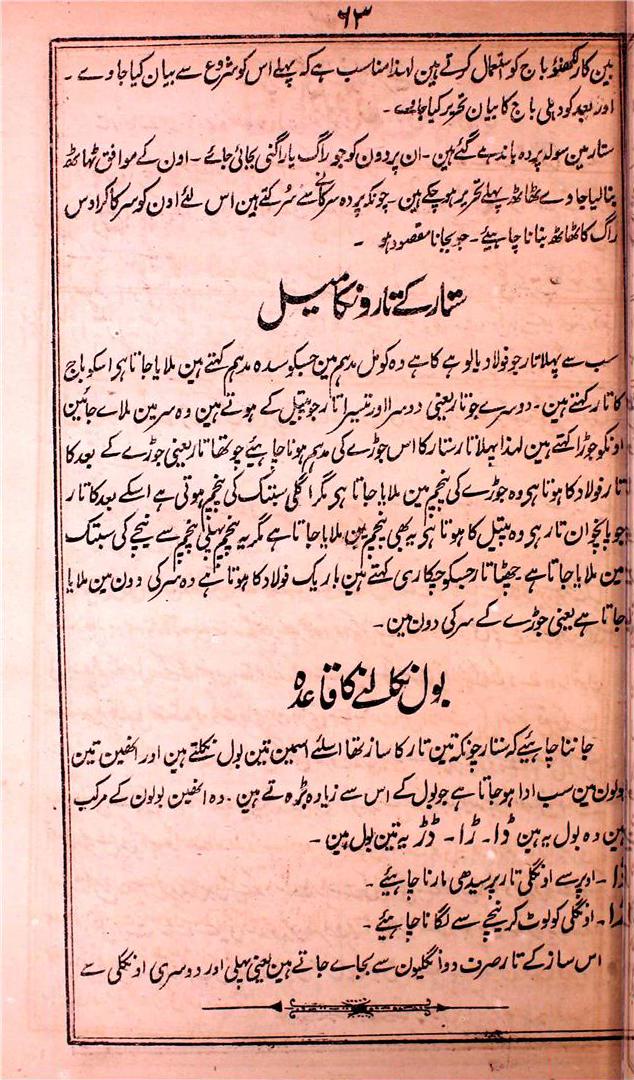 ۶۳
بین کار لکھنؤ باج کو استعمال کرتے ہین لہذا مناسب ہے کہ پہلے اس کو شروع سے بیان کیا جاوے ۔
اور بعد کو دہلی باج کا بیان تحریر کیا جاوے ۔
ستار مین سولہ پردہ باندھے گئے ہین ۔ ان پردون کو جو راگ یا راگنی بجائی جائے ۔ اون کے موافق ٹھاٹھ
بنا لیا جاوے ٹھاٹھ پہلے تحریر ہو چکے ہین ۔ چونکہ پردہ سرکانے سے سُر کتے ہین اس لئے اون کو سرکا کر اوس
راگ کا ٹھاٹھ بنانا چاہیئے ۔ جو بجانا مقصود ہو ۔
ستار کے تارونکا میل
سب سے پہلا تار جو فولاد یا لوہے کا ہے وہ کومل مدہم مین جسکو سدہ مدہم کہتے ہین ملایا جاتا ہی اسکو باج
کا تار کہتے ہین ۔ دوسرے جو تار یعنی دوسرا اور تیسرا تار جو پیتل کے ہوتے ہین وہ سر مین ملاے جائین
اونکو جوڑا کہتے ہین لہذا پہلا تار ستار کا اس جوڑے کی مدہم ہونا چاہئیے چوتھا تار یعنی جوڑے کے بعد کا
تار فولاد کا ہوتا ہی وہ جوڑے کی پنچم مین ملایا جاتا ہی مگر اگلی سبتک کی پنچم ہوتی ہے اسکے بعد کا تار
جو پانچوان تار ہی وہ پیتل کا ہوتا ہی یہ بھی پنچم مین ملایا جاتا ہے مگر یہ پنچم پہلی پنچم سے نیچے کی سبتک
مین ملایا جاتا ہے چھٹا تار جسکو چکاری کہتے ہین باریک فولاد کا ہوتا ہے وہ سُر کی دون مین ملایا
جاتا ہے یعنی جوڑے کے سر کی دون مین ۔
بول نکالنے کا قاعدہ
جاننا چاہئیے کہ ستار چونکہ تین تار کا ساز تھا اسلئے اسمین تین بول نکلتے ہین اور انھین تین
بولون مین سب ادا ہو جاتا ہے جو بول کے اس سے زیادہ بڑہ تے ہین ۔ وہ انھین بولون کے مرکب
ہین وہ بول یہ ہین ڈا ۔ ڑا ۔ ڈڑ یہ تین بول ہین ۔
ڈا ۔ اوپر سے اونگلی تار پر سیدھی مارنا چاہئیے ۔
ڑا ۔ اونگلی کو لوٹ کر نیچے سے لگانا چاہئیے ۔
اس ساز کے تار صرف دو انگلیون سے بجاے جاتے ہین یعنی پہلی اور دوسری اونگلی سے